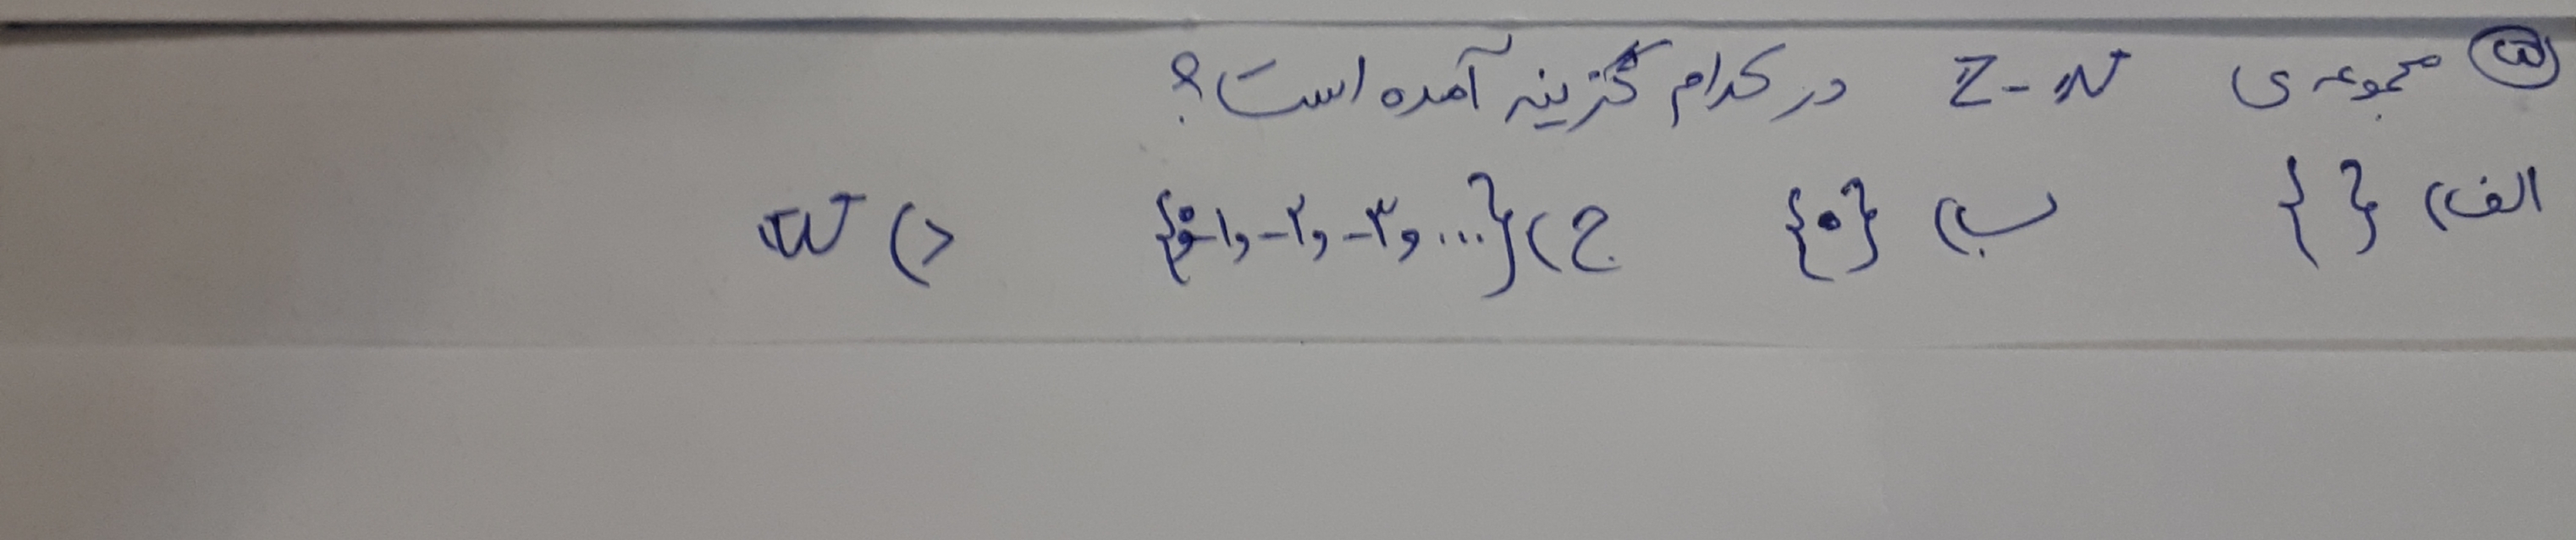 ۵ مجموعه ی Z - N در کدام گزینه آمده است؟
الف) { } ب) {۰} ج) {۰, -۱, -۲, -۳, ...} د) W